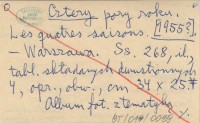 Cztery pory roku.
Les quatres saisons. [1955?]
– Warszawa. Ss. 268, il.,
tabl. składanych dwustronnych
4, opr., obw., cm 34 x 25.
Album fot. o tematyce